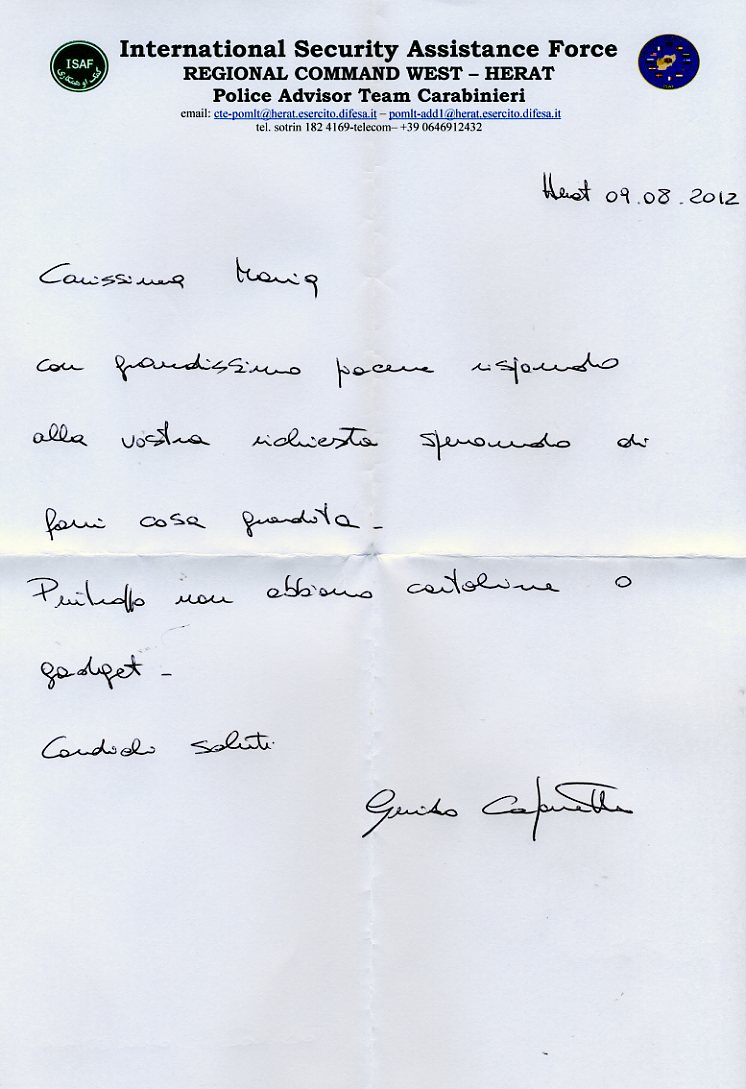 ISAF
کمک او همکاری
International Security Assistance Force
REGIONAL COMMAND WEST – HERAT
Police Advisor Team Carabinieri
email: cte-pomlt@herat.esercito.difesa.it – pomlt-add1@herat.esercito.difesa.it
tel. sotrin 182 4169-telecom– +39 0646912432
Herat 09.08.2012
Carissima Maria
con grandissimo pacere rispondo
alla vostra richiesta sperando di
farvi cosa gradita -
Purtroppo non abbiamo cartoline o
gadget -
Cordiali saluti
Guido